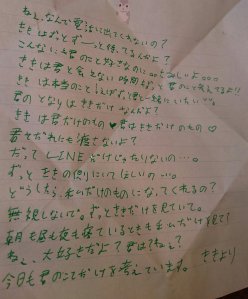 ねぇ、なんで電話に出てくれないの?
ききはずっとずーっと待ってるんだよ?
こんなにも君のこと好きなのに。。さみしいよ。。。
ききは君と会えない時間もずっと君のこと考えてるよ!!
ききは本当のこというとずっと君と一緒にいたい♡。
君のとなりはききだけなんだよ?
ききは君だけのもの♥君はききだけのもの♡
君をだれにも渡さないよ?
だってLINEだけじゃたりないの…。
ずっとききの側にいてほしいの…。
どうしたら、私だけのものになってくれるの?
無視しないで。ずっとききだけを見ていて。
朝も昼も夜も寝ているときも私だけ見て?
ねぇ、大好きだよ?君は?ねぇ?
今日も君のことだけを考えています。 ききより